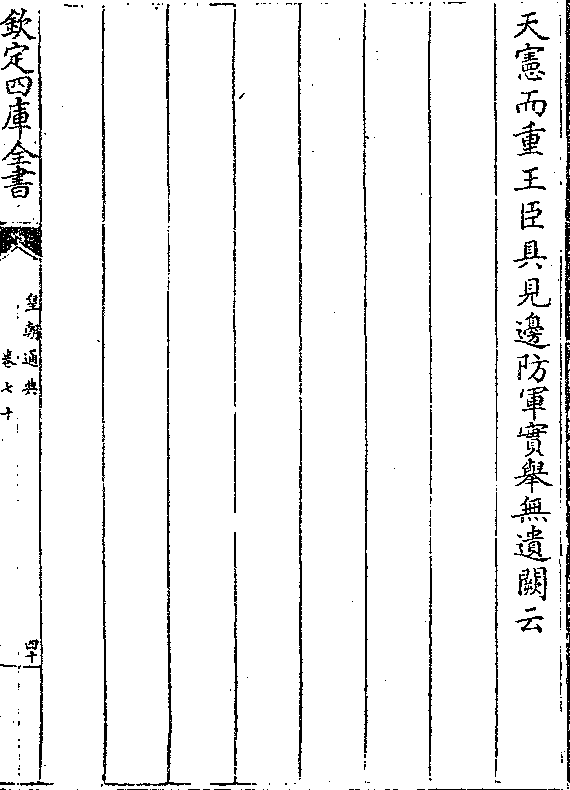 天憲而重王臣具見邊防軍實舉無遺闕云
欽定四庫全書
皇朝通典
卷七十
四十